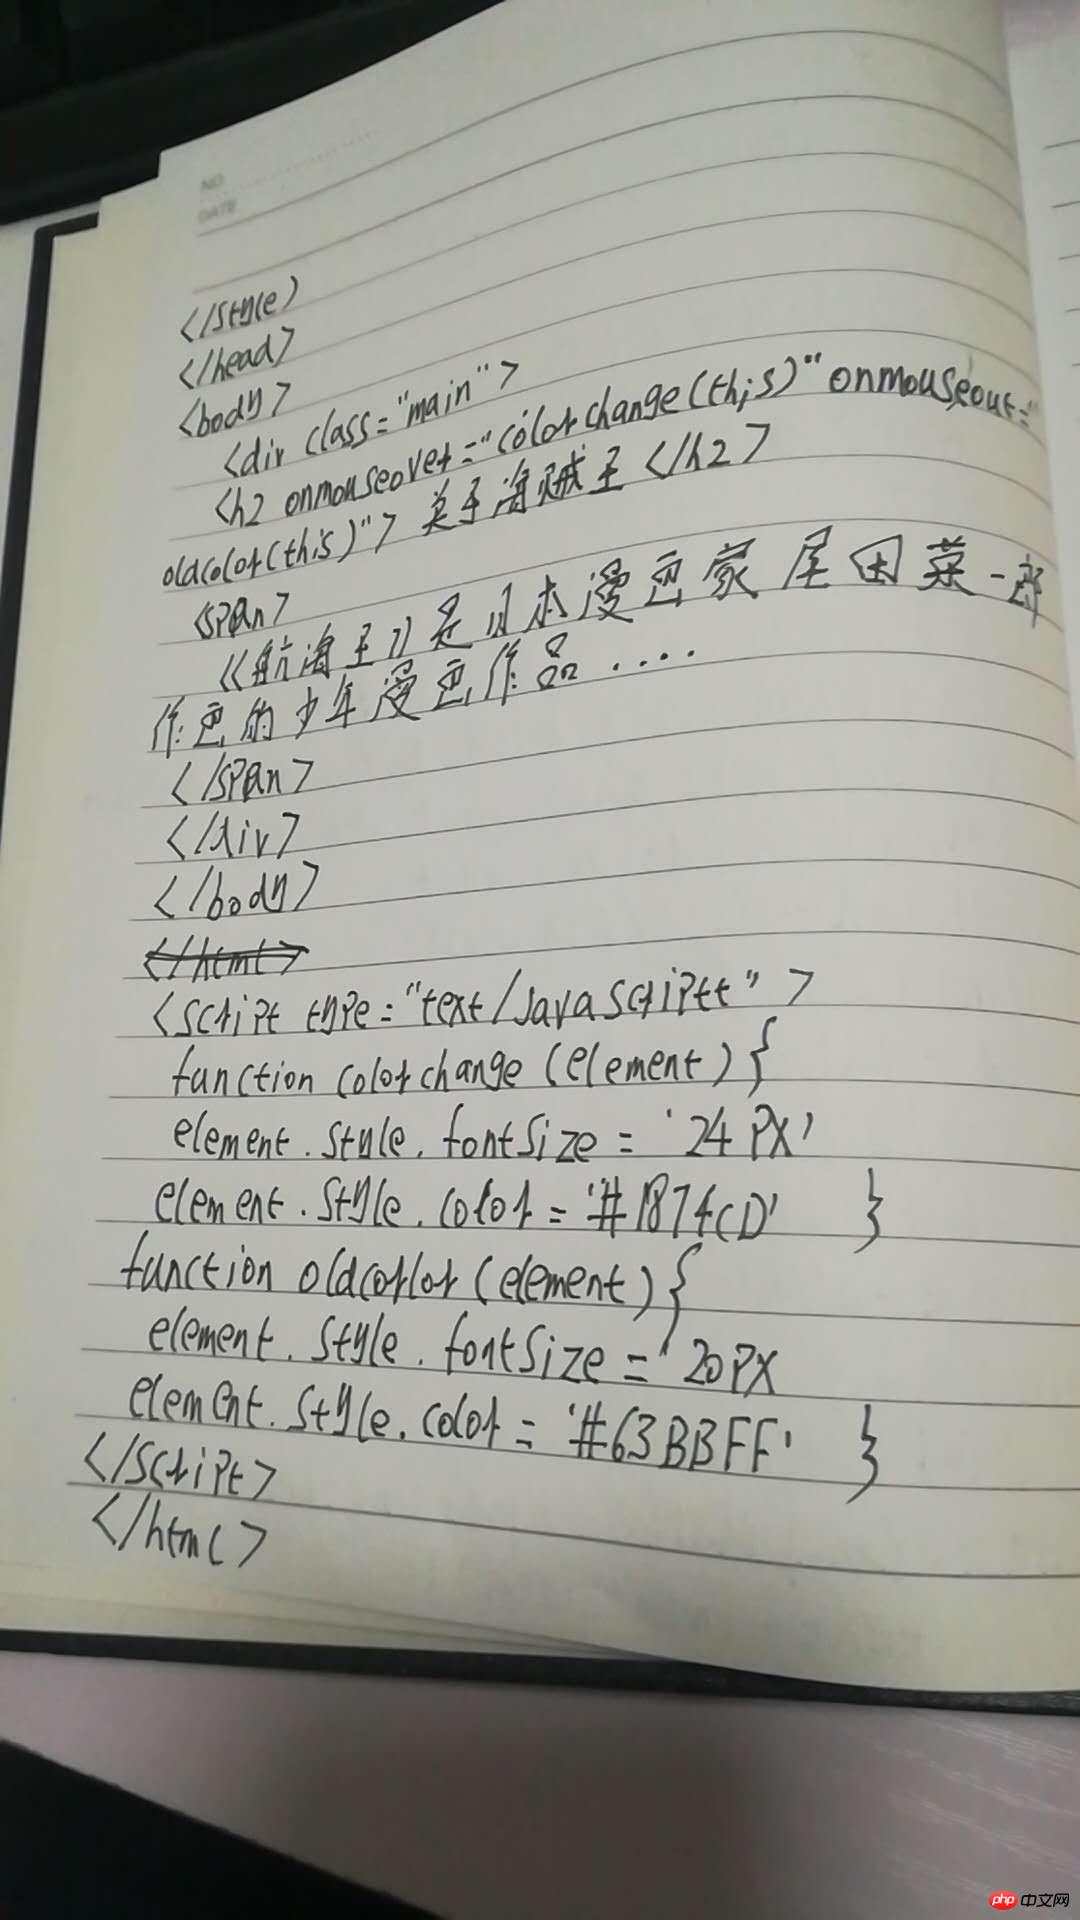 NO
DATE
</style)
</head>
<body>
<div class="main">
<h2 onmouseover="colorchange(this)" onmouseout="
oldcolor(this)"> 关于海贼王 </h2>
<span>
《航海王》是日本漫画家尾田荣一郎
作画的少年漫画作品 ....
</span>
</div>
</body>
</html>
<script type="text/javascriptt">
function colorchange (element) {
element.style.fontSize = '24PX'
element.style.color = '#1874CD' }
function oldcorlor (element) {
element.style.fontSize = '20PX
element.style.color = '#63BBFF' }
</script>
</html>
php 中文网